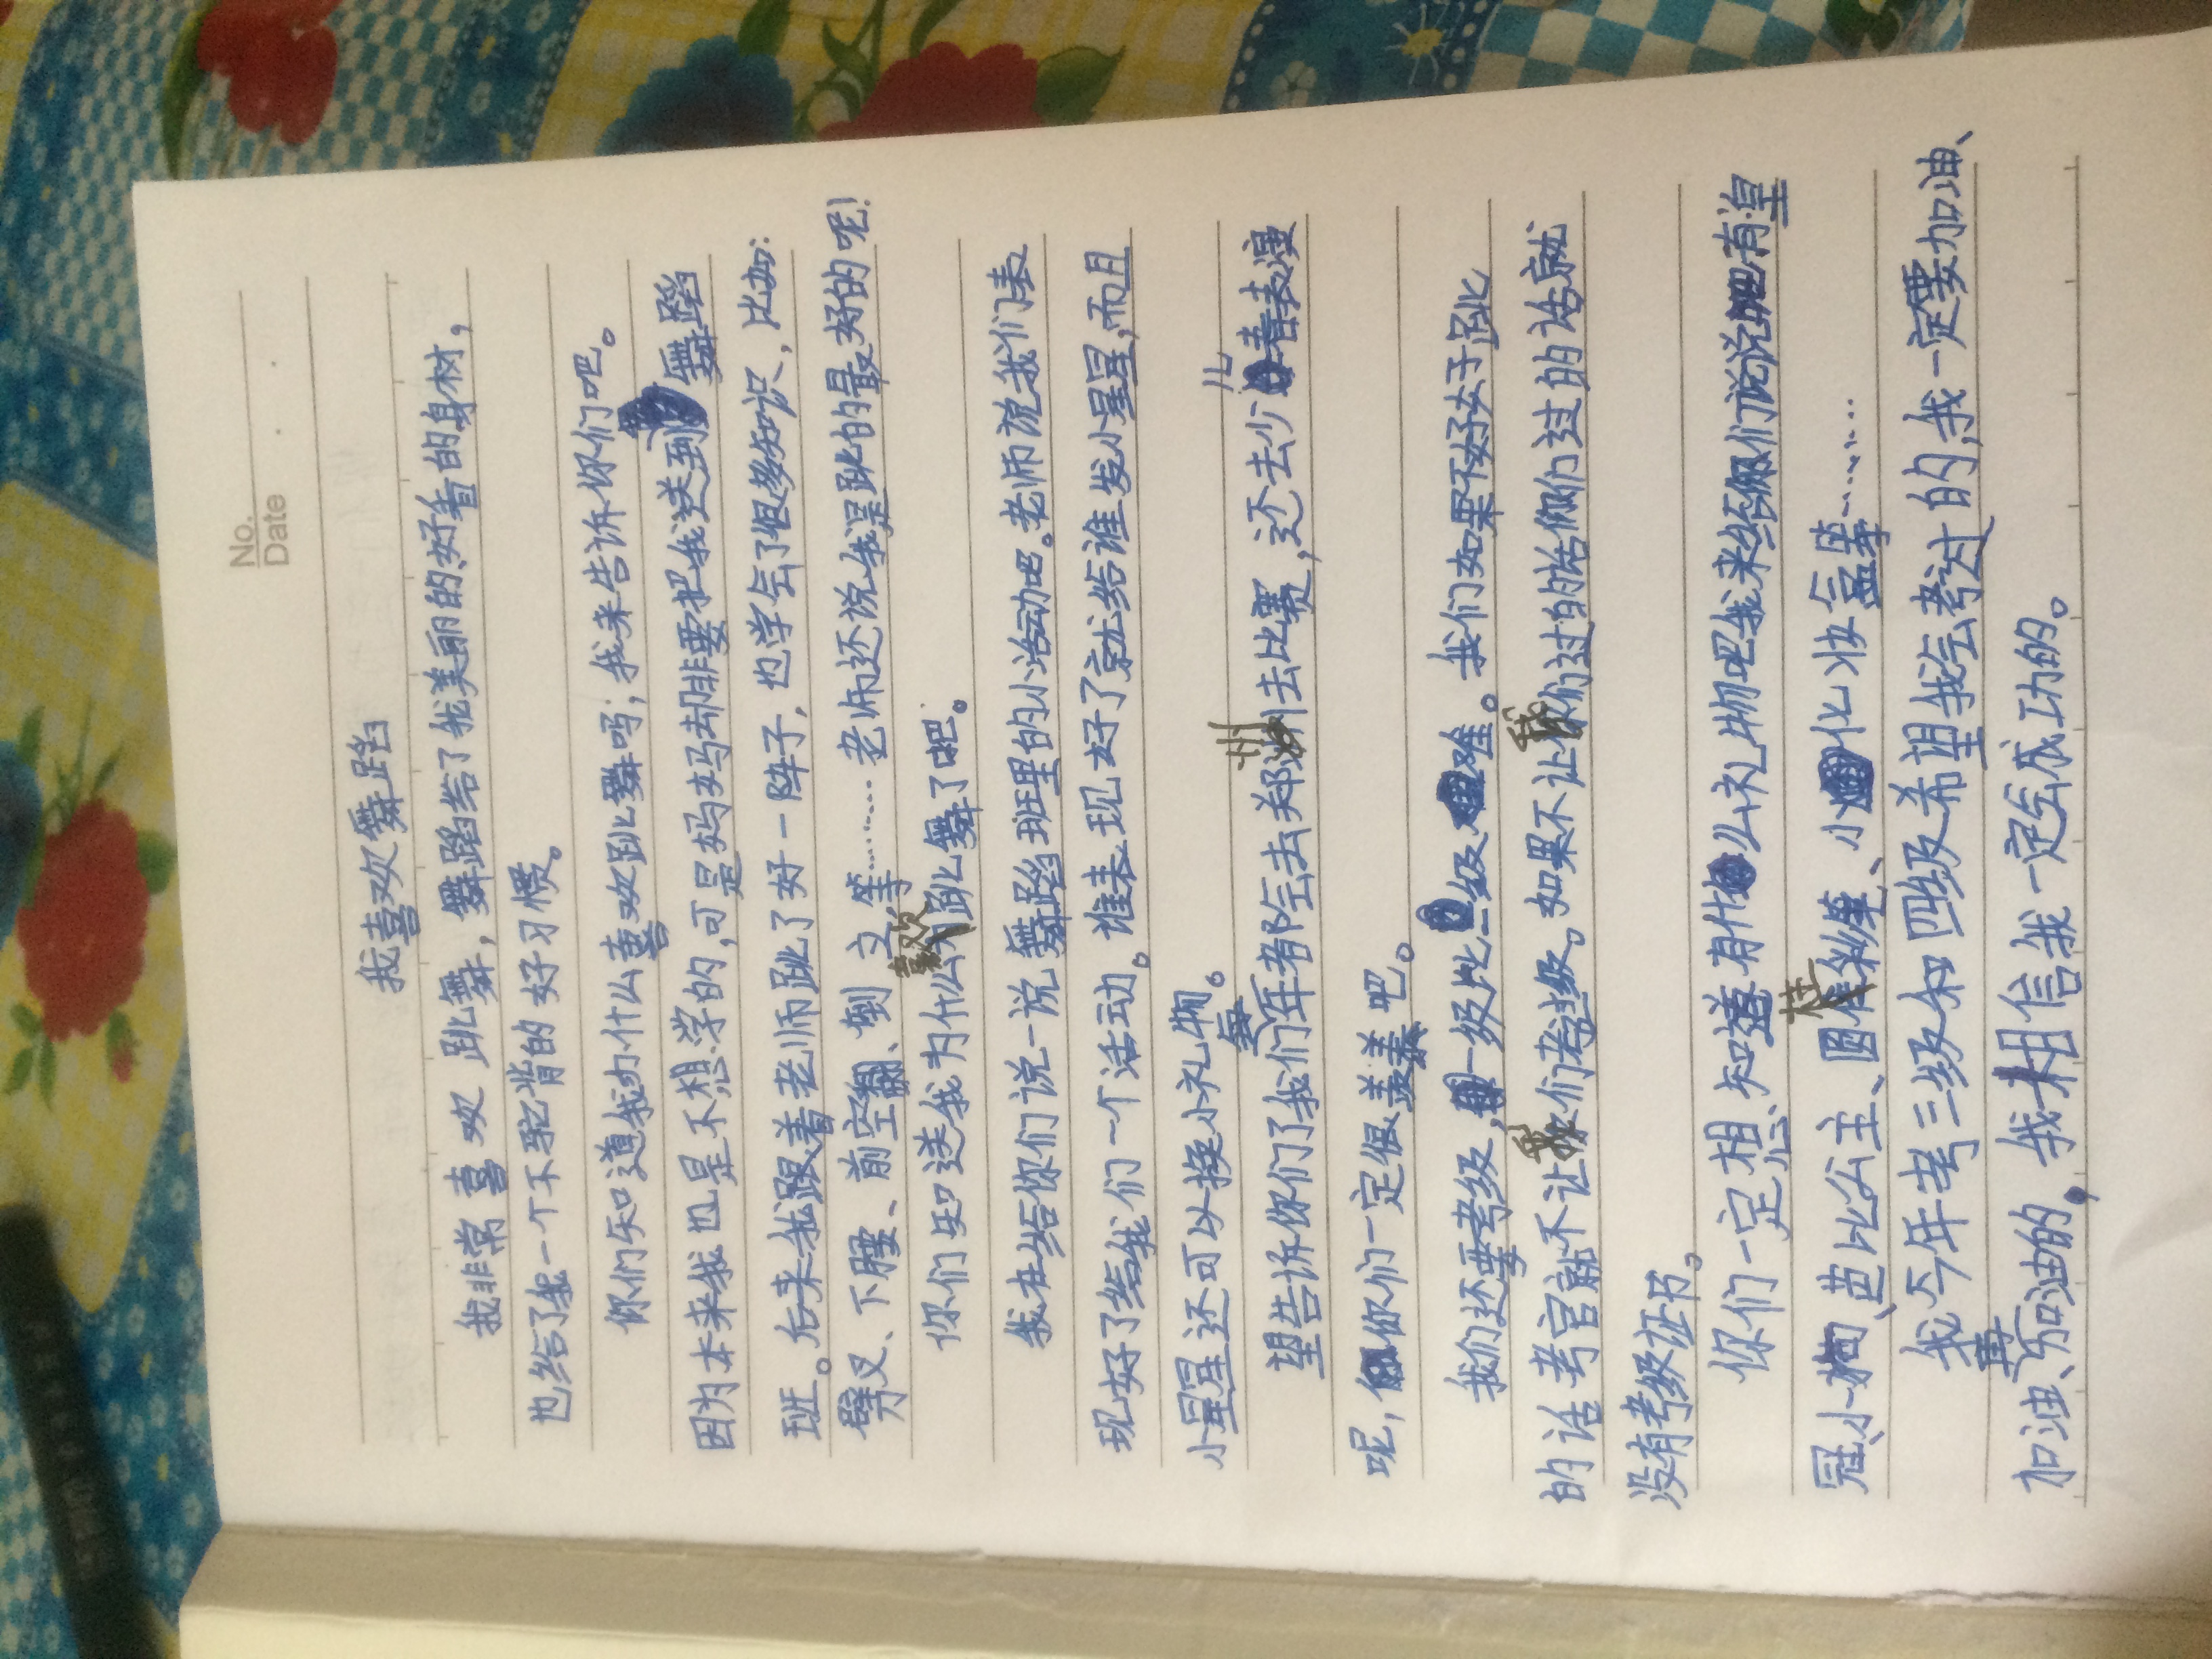 No.
Date
我喜欢舞蹈
我非常喜欢跳舞，舞蹈给了我美丽的好看的身材，
也给了我一个不驼背的好习惯。
你们知道我为什么喜欢跳舞吗；我来告诉你们吧。
因为本来我也是不想学的，可是妈妈却非要把我送到舞蹈
班。后来我跟着老师跳了好一阵子，也学会了很多知识，比如：
劈叉、下腰、前空翻、倒立等……老师还说我是跳的最好的呢！
你们知道我为什么喜欢跳舞了吧。
我在给你们说一说舞蹈班里的小活动吧。老师说我们表
现好了给我们一个活动。谁表现好了就给谁发小星星，而且
小星星还可以换小礼物。
望告诉你们了我们每年都会去郑州去比赛，还去少儿春表漫
呢，你们一定很羡慕吧。
我们还要考级，一级比一级难。我们如果不好好跳
的话考官就不让我们考级。如果不让我们过的话你们过的话就
没有考级证书。
你们一定想知道有什么礼物吧我来给你们说说吧有皇
冠、小狗、芭比公主、圆柱彩笔、小化妆盒等……
我今年考三级和四级希望我会考过的，我一定要加油、
加油、再加油的，我相信我一定会成功的。